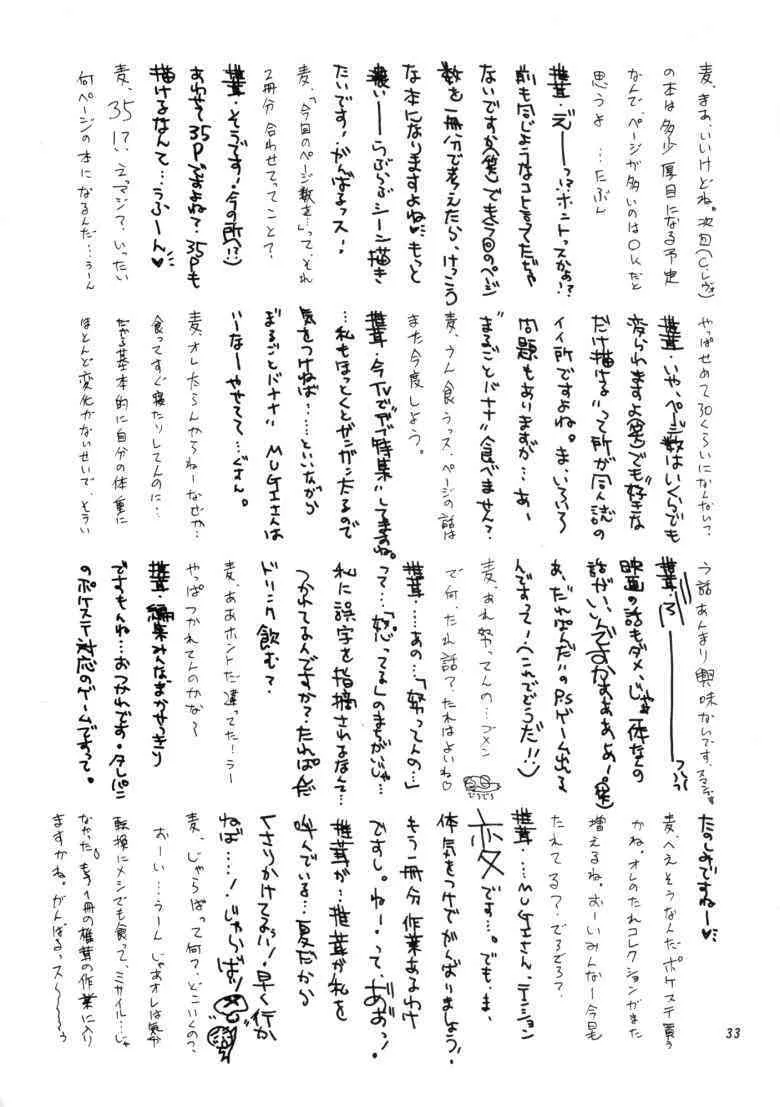 麦、まあ、いいけどね。次回(C.レヴォ)
の本は多少厚目になる予定
なんで、ページが多いのはOKだと
思うよ…たぶん
椎茸・えーーっ!?ホントっスかぁ!?
前も同じようなコト言ってたじゃ
ないですか(笑)でも今回のページ
数を一冊分で考えたら、けっこう
な本になりますよね♥もっと
濃いーーらぶらぶシーン描き
たいです!がんばるっス!
麦、「今回のページ数を…」って、それ
2冊分合わせてってこと?
椎茸・そうです!今の所!?
あわせて35Pですよね?35Pも
描けるなんて…うふーん♥
麦、35!?えっマジで、いったい
何ページの本になるんだ…うーん
やっぱせめて30くらいになんない?
椎茸・いや、ページ数はいくらでも
変られますよ(笑)でも“好きな
だけ描ける”って所が同人誌の
イイ所ですよね。ま、いろいろ
問題もありますが…あ、
“まるごとバナナ”食べません?
麦、うん食うっス、ページの話は
また今度しよう。
椎茸・今TVで“デブ特集”してますね。
…私もほっとくとガンガン太るので
気をつけねば……といいながら
“まるごとバナナ”MUGIさんは
いいなーやせてて…ぐすん。
麦、オレ太らんからねーなぜか…
食ってすぐ寝たりしてんのに…
だから基本的に自分の体重に
ほとんど変化がないせいで、そうい
う話あんまり興味ないです、スマン
椎茸・う────っっ
映画の話もダメ、じゃ一体なんの
話がいいんですかぁぁぁぁ!(笑)
あ、“たれぱんだ”のPSゲーム出る
んですって!(これでどうだ!!)
麦、あれ努ってんの…ゴメン
で何、たれ話?たれはよいね♡
椎茸・…あの…「努ってんの…」
って…「怒ってる」のまちがいじゃ…
私に誤字を指摘されるなんて…
つかれてるんですか?たれぱんだ
ドリンク飲む?
麦、ああホントだ違ってた!うー
やっぱつかれてんのかな〜
椎茸・編集みんなまかせっきり
ですもんね…おつかれです・タレパン
のポケステ対応のゲームですって。
たのしみですねー♥
麦、へえそうなんだポケステ買う
かね。オレのたれコレクションがまた
増えるね。おーいみんなー今日も
たれてる?でろでろ?
椎茸・…MUGIさん、テーション
変です…。でも、ま、
体気をつけてがんばりましょう!
もう一冊分作業あるわけ
ですし。ねー・って、ああっ!
椎茸が…椎茸が私を
呼んでいる…夏だから
くさりかけてるぅ!!早く行か
ねば…!じゃらば!
麦、じゃらばって何?、どこいくの?
おーい…うーん じゃあオレは気分
転換にメシでも食って、ミサイル…じゃ
なかった。もう1冊の椎茸の作業に入り
ますかね。がんばるっス〜〜〜
33